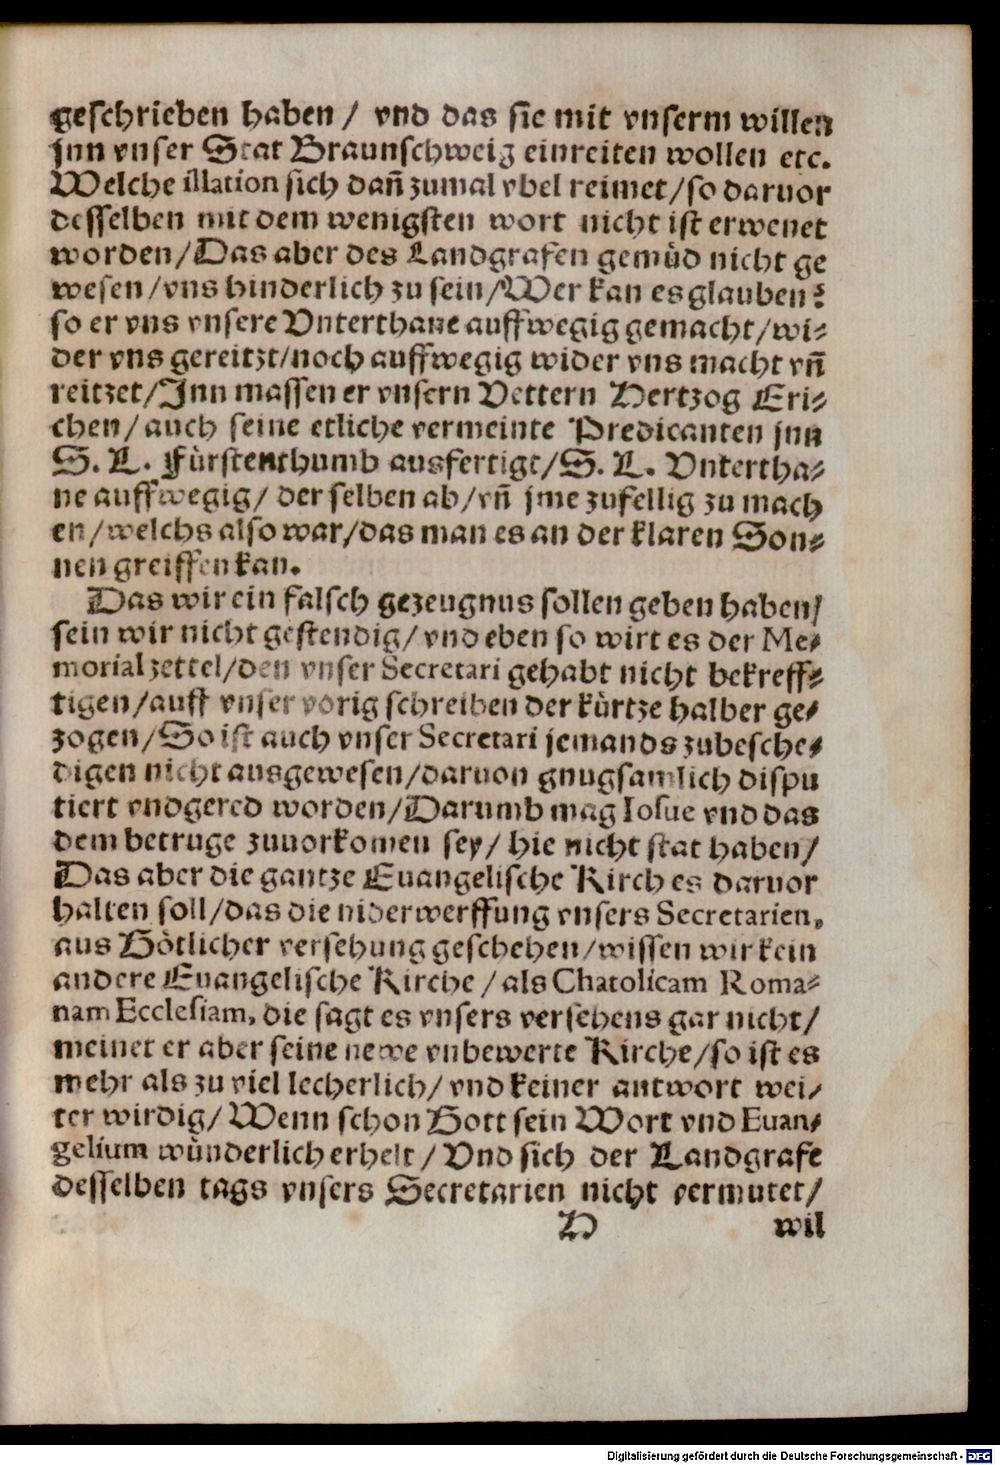 geschrieben haben / vnd das sie mit vnserm willen
jnn vnser Stat Braunschweig einreiten wollen etc.
Welche illation sich dañ zumal vbel reimet/so daruor
desselben mit dem wenigsten wort nicht ist erwenet
worden/Das aber des Landgrafen gemüd nicht ge
wesen/vns hinderlich zu sein/Wer kan es glauben?
so er vns vnsere Vnterthane auffwegig gemacht/wi-
der vns gereitzt/noch auffwegig wider vns macht vñ
reitzet/Jnn massen er vnsern Vettern Hertzog Eri-
chen/auch seine etliche vermeinte Predicanten jnn
S. L. Fürstenthumb ausfertigt/S. L. Vntertha-
ne auffwegig/ der selben ab/vñ jme zufellig zu mach
en/welchs also war/das man es an der klaren Son-
nen greiffen kan.
Das wir ein falsch gezeugnus sollen geben haben/
sein wir nicht gestendig/vnd eben so wirt es der Me-
morial zettel/den vnser Secretari gehabt nicht bekreff-
tigen/auff vnser vorig schreiben der kürtze halber ge-
zogen/So ist auch vnser Secretari jemands zubesche-
digen nicht ausgewesen/daruon gnugsamlich dispu
tiert vndgered worden/Darumb mag Iosue vnd das
dem betruge zuuorkomen sey/ hie nicht stat haben/
Das aber die gantze Euangelische Kirch es daruor
halten soll/das die niderwerffung vnsers Secretarien,
aus Götlicher versehung geschehen/wissen wir kein
andere Euangelische Kirche / als Chatolicam Roma-
nam Ecclesiam, die sagt es vnsers versehens gar nicht/
meinet er aber seine newe vnbewerte Kirche/so ist es
mehr als zu viel lecherlich/vnd keiner antwort wei-
ter wirdig/Wenn schon Gott sein Wort vnd Euan-
gelium wünderlich erhelt / Vnd sich der Landgrafe
desselben tags vnsers Secretarien nicht vermutet/
H wil
Digitalisierung gefördert durch die Deutsche Forschungsgemeinschaft - DFG